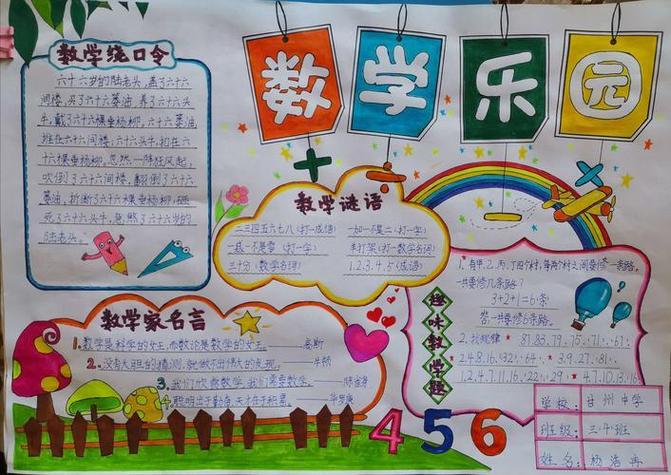 数学乐园
数学绕口令
六十六岁的陆老头,盖了六十六
间楼,买了六十六篓油,养了六十六头
牛,栽了六十六棵垂杨柳,六十六篓油
堆在六十六间楼,六十六头牛,扣在六
十六棵垂杨柳,忽然一阵狂风起,
吹倒了六十六间楼,翻倒了六十六
篓油,折断了六十六棵垂杨柳,砸
死了六十六头牛,急煞了六十六岁的
陆老头。
数学谜语
二三四五六七八(打一成语)
一加一不是二(打一字)
一减一不是零(打一字)
来打架(打一数学名词)
三十分(数学名词)
1.2.3.4.5(成语)
数学家名言
1.数学是科学的女王,而数论是数学的女王。——高斯
2.没有大胆的猜测,就做不出伟大的发现。——牛顿
3.我们欣赏数学,我们需要数学。——陈省身
4.聪明出于勤奋,天才在于积累。——华罗庚
趣味数学题
1.有甲、乙、丙、丁四个村,每两个村之间要修一条路,
一共要修几条路?
3+2+1=6条
答:一共要修6条路。
2.找规律
81.83.79.75.:71.:67.:
2.4.8.16.:32.:64.:
3.9.27.:81.:
1.2.4.7.11.16.:22.:29
4.7.10.13.:16
4 5 6
学校: 甘州中学
班级: 三·4·班
姓名: 杨浩冉